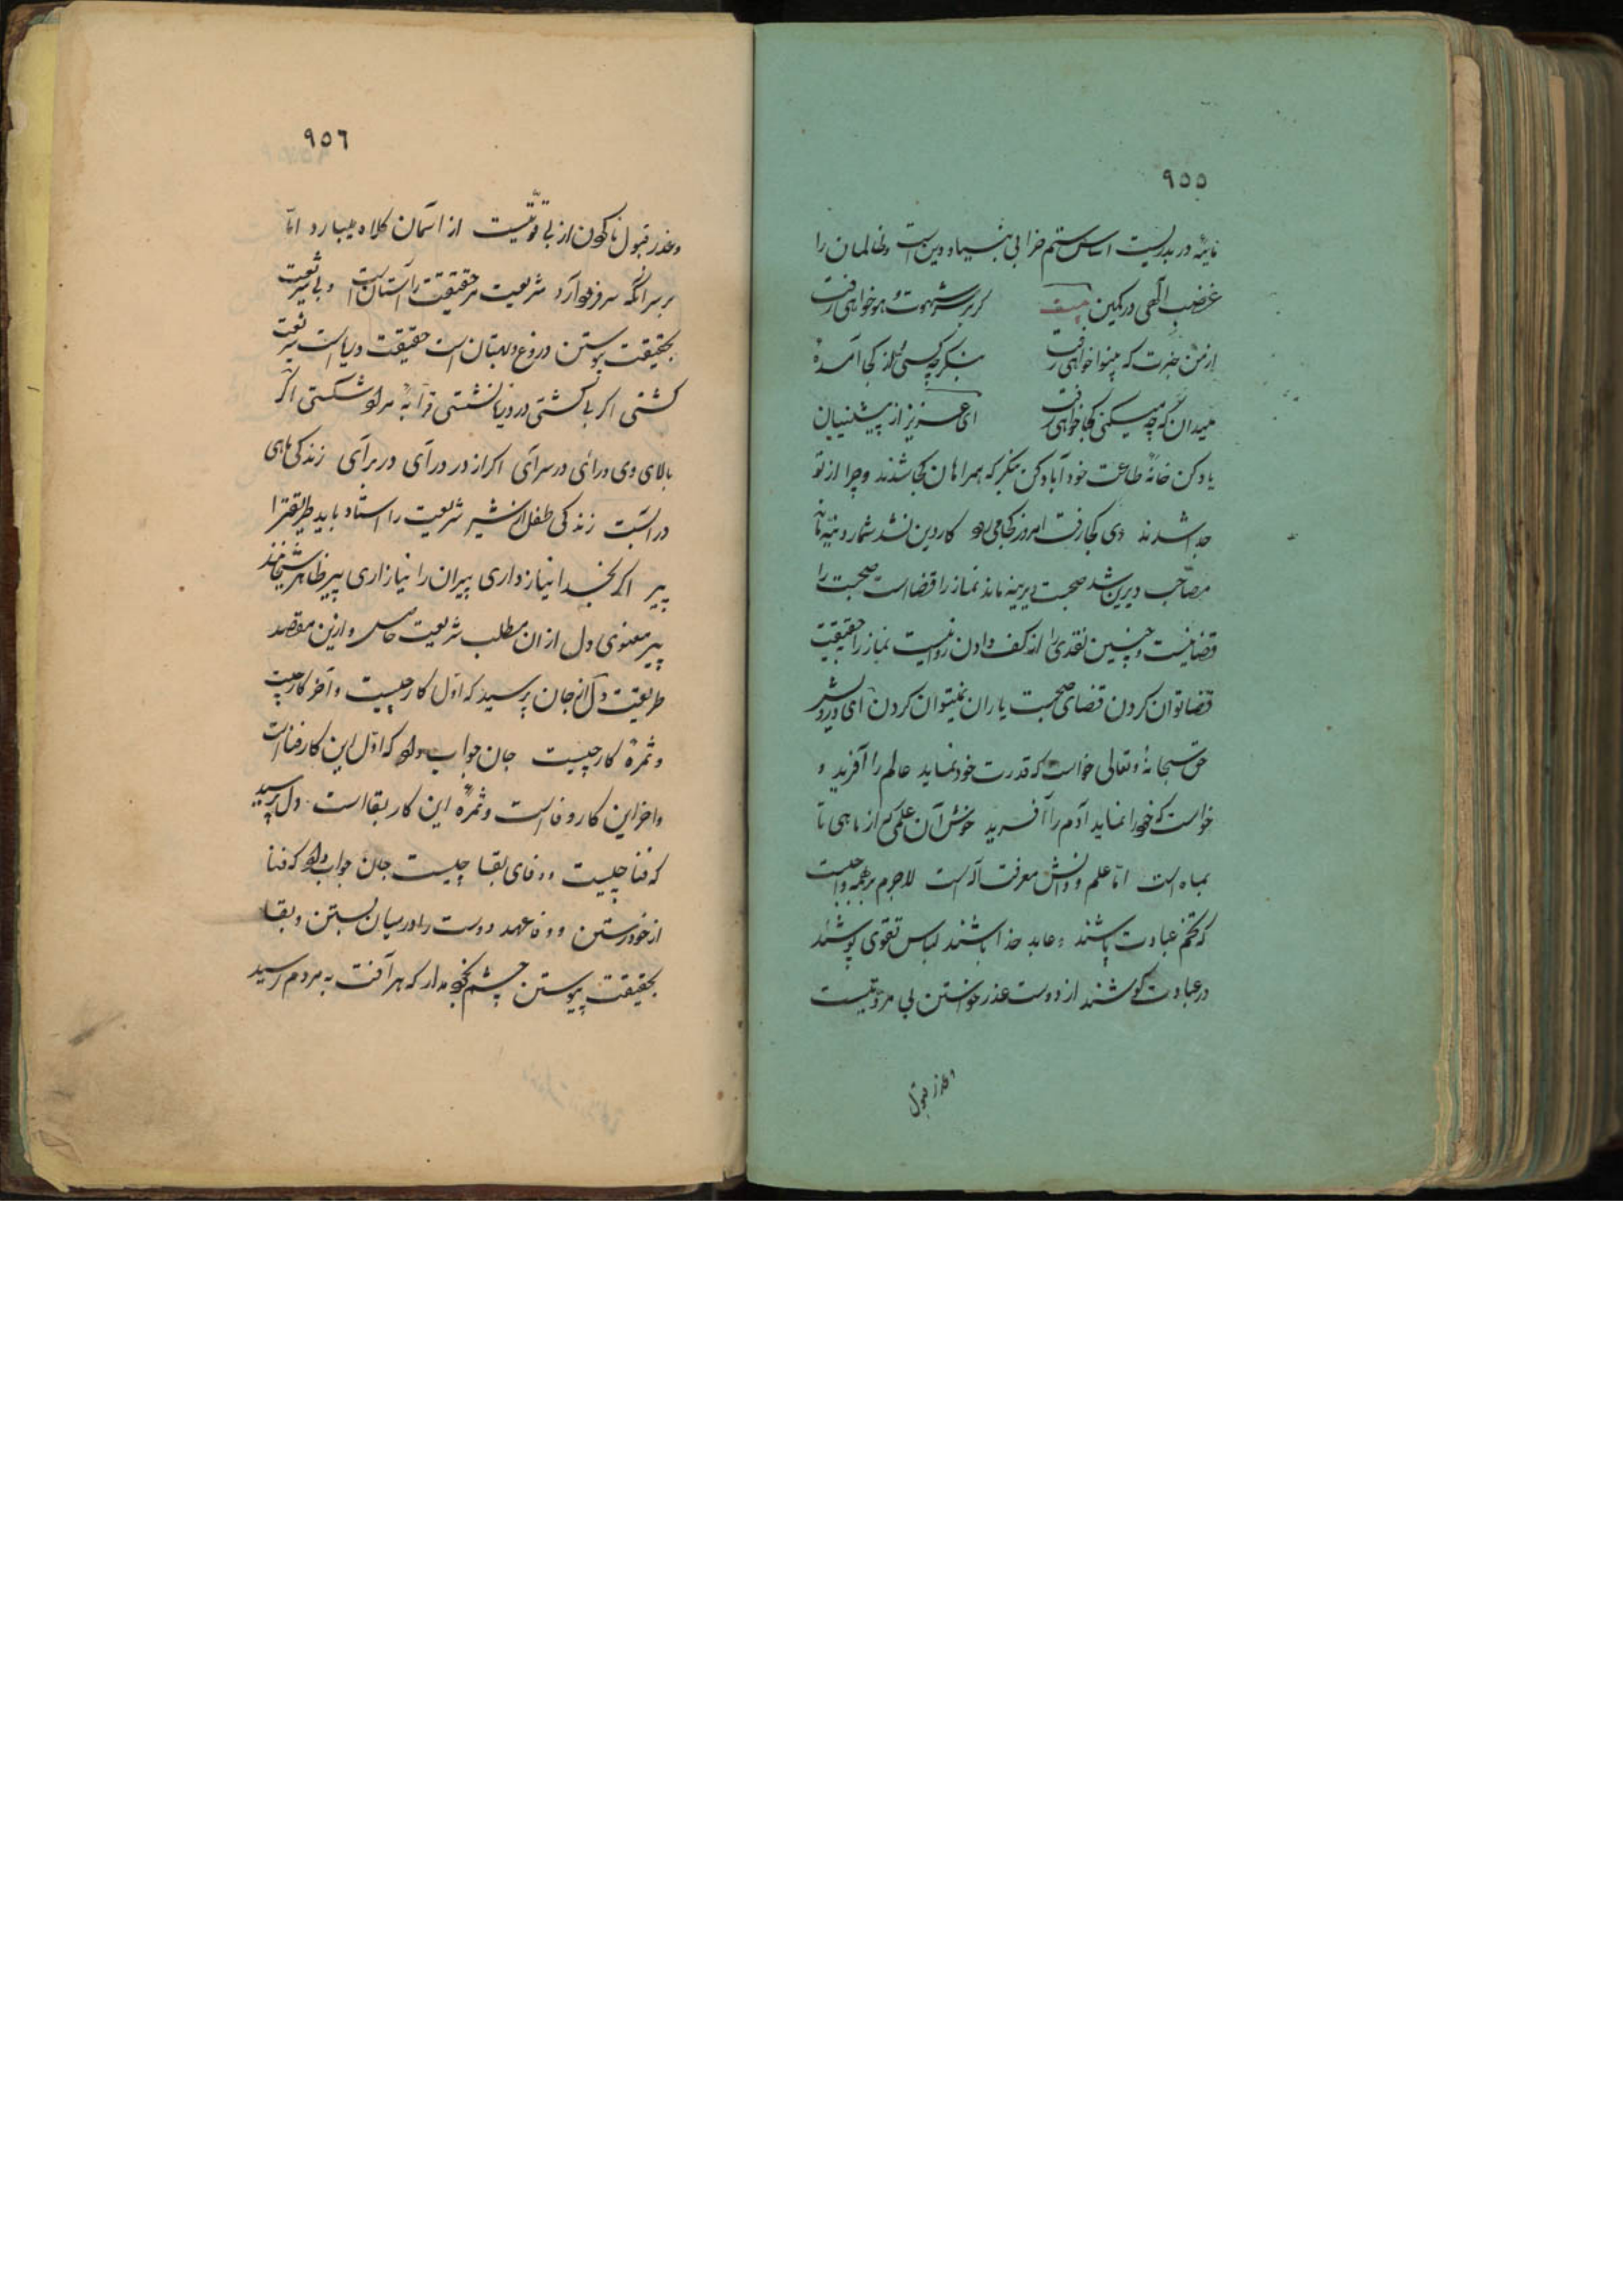 ٩٥٥
مایهٔ در بدریست اساس ستم خرابی بنیاد دین است و ظالمان را
غضب الهی در کمین بیت گر بر سر شهوت و هوا خواهی رفت
از من خبرت که بینوا خواهی رفت بنگر چه کسی و از کجا آمدهٔ
میدان که چه میکنی کجا خواهی رفت ای عزیز از پیشینیان
یاد کن خانهٔ طاعت خود آباد کن بنگر که همراهان کجا شدند و چرا از تو
جدا شدند دی کجا رفت امروز کجا میرود کار دین نشد شمار دنیه ماند
مصاحب دیرین شد صحبت دیرینه ماند نماز را قضا است صحبت را
قضا نیست و چنین نقدی را از کف دادن روا نیست نماز را حقیقت
قضا توان کردن قضای صحبت یاران نمیتوان کردن ای درویش
حق سبحانه و تعالی خواست که قدرت خود نماید عالم را آفرید و
خواست که خود را نماید آدم را آفرید خوش آن علمی که از ماهی تا
بماه است اما علم و دانش معرفت اله است لاجرم بر همه واجبست
که تخم عبادت پاشند و عابد خدا باشند لباس تقوی پوشند
در عبادت کوشند از دوست عذر خواستن بی مروتیست
و عذر قبول
٩٥٦
و عذر قبول ناکردن از بی قوتیست از آسمان کلاه میبارد اما
بر سر آنکه سر فرود آرد شریعت مر حقیقت را آستان است و بی شریعت
بحقیقت پیوستن دروغ و بهتان است حقیقت دریاست شریعت
کشتی اگر بی کشتی در دریا نشستی قرابه مراد شکستی اگر
بالای وی درائی در سرآی اگر از در درآی در برآی زندگی ماهی
در آبست زندگی طفل از شیر شریعت را استاد باید طریقترا
پیر اگر بخدا نیاز داری پیران را نیازاری پیر ظاهر شیخانند
پیر معنوی دل از آن مطلب شریعت خاص و ازین مقصد
طریقت دل از جان پرسید که اول کار چیست و آخر کار چیست
و ثمرهٔ کار چیست جان جواب داد که اول این کار فنا است
و آخر این کار وفا است و ثمرهٔ این کار بقا است دل پرسید
که فنا چیست و وفای بقا چیست جان جواب داد که فنا
از خود رستن و وفا عهد دوست را در میان بستن و بقا
بحقیقت پیوستن چشم بخود مدار که هر آفت به مردم رسید